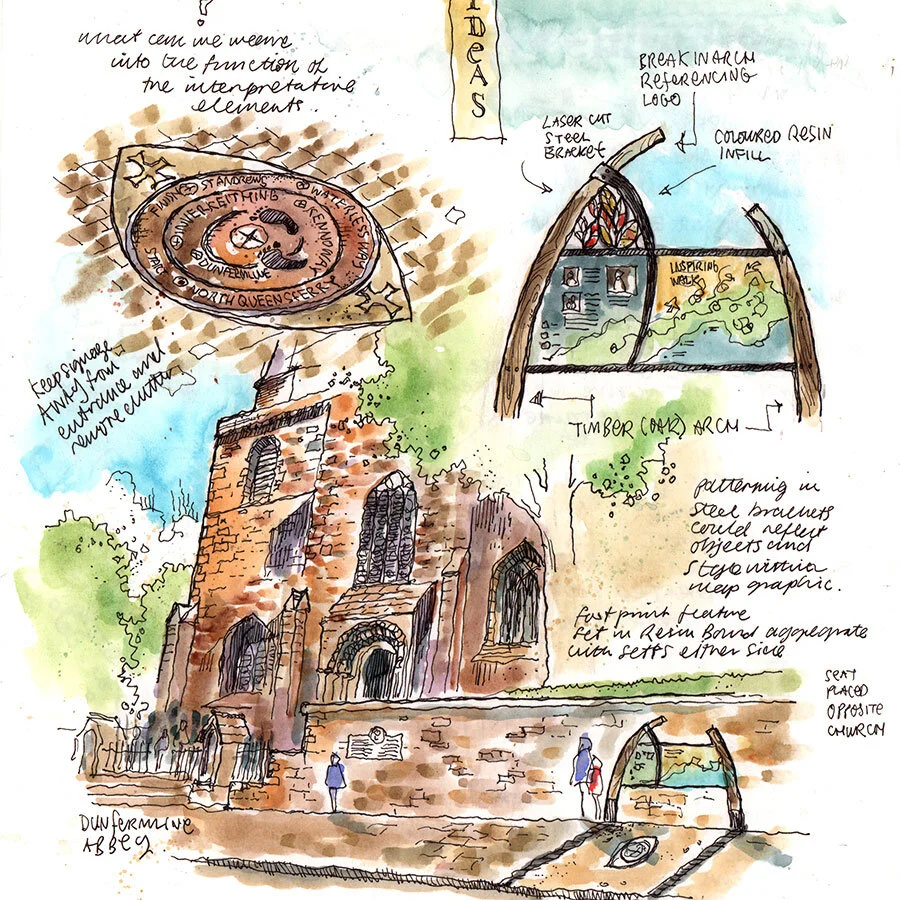 ?
what can we weave
into the function of
the interpretative
elements.
IDEAS
BREAK IN ARCH
REFERENCING
LOGO
LASER CUT
STEEL
BRACKET
COLOURED RESIN
INFILL
ST ANDREWS
WATERLESS WAY
INVERKEITHING
KENNOWAY
DUNFERMLINE
NORTH QUEENSFERRY
INSPIRING
WALK
keep signage
away from
entrance and
remove clutter
TIMBER (OAK) ARCH
patterning in
steel brackets
could reflect
objects and
within
map graphic.
footprint feature
set in Resin Bound aggregate
with setts either side
SEAT
PLACED
OPPOSITE
CHURCH
DUNFERMLINE
ABBEY